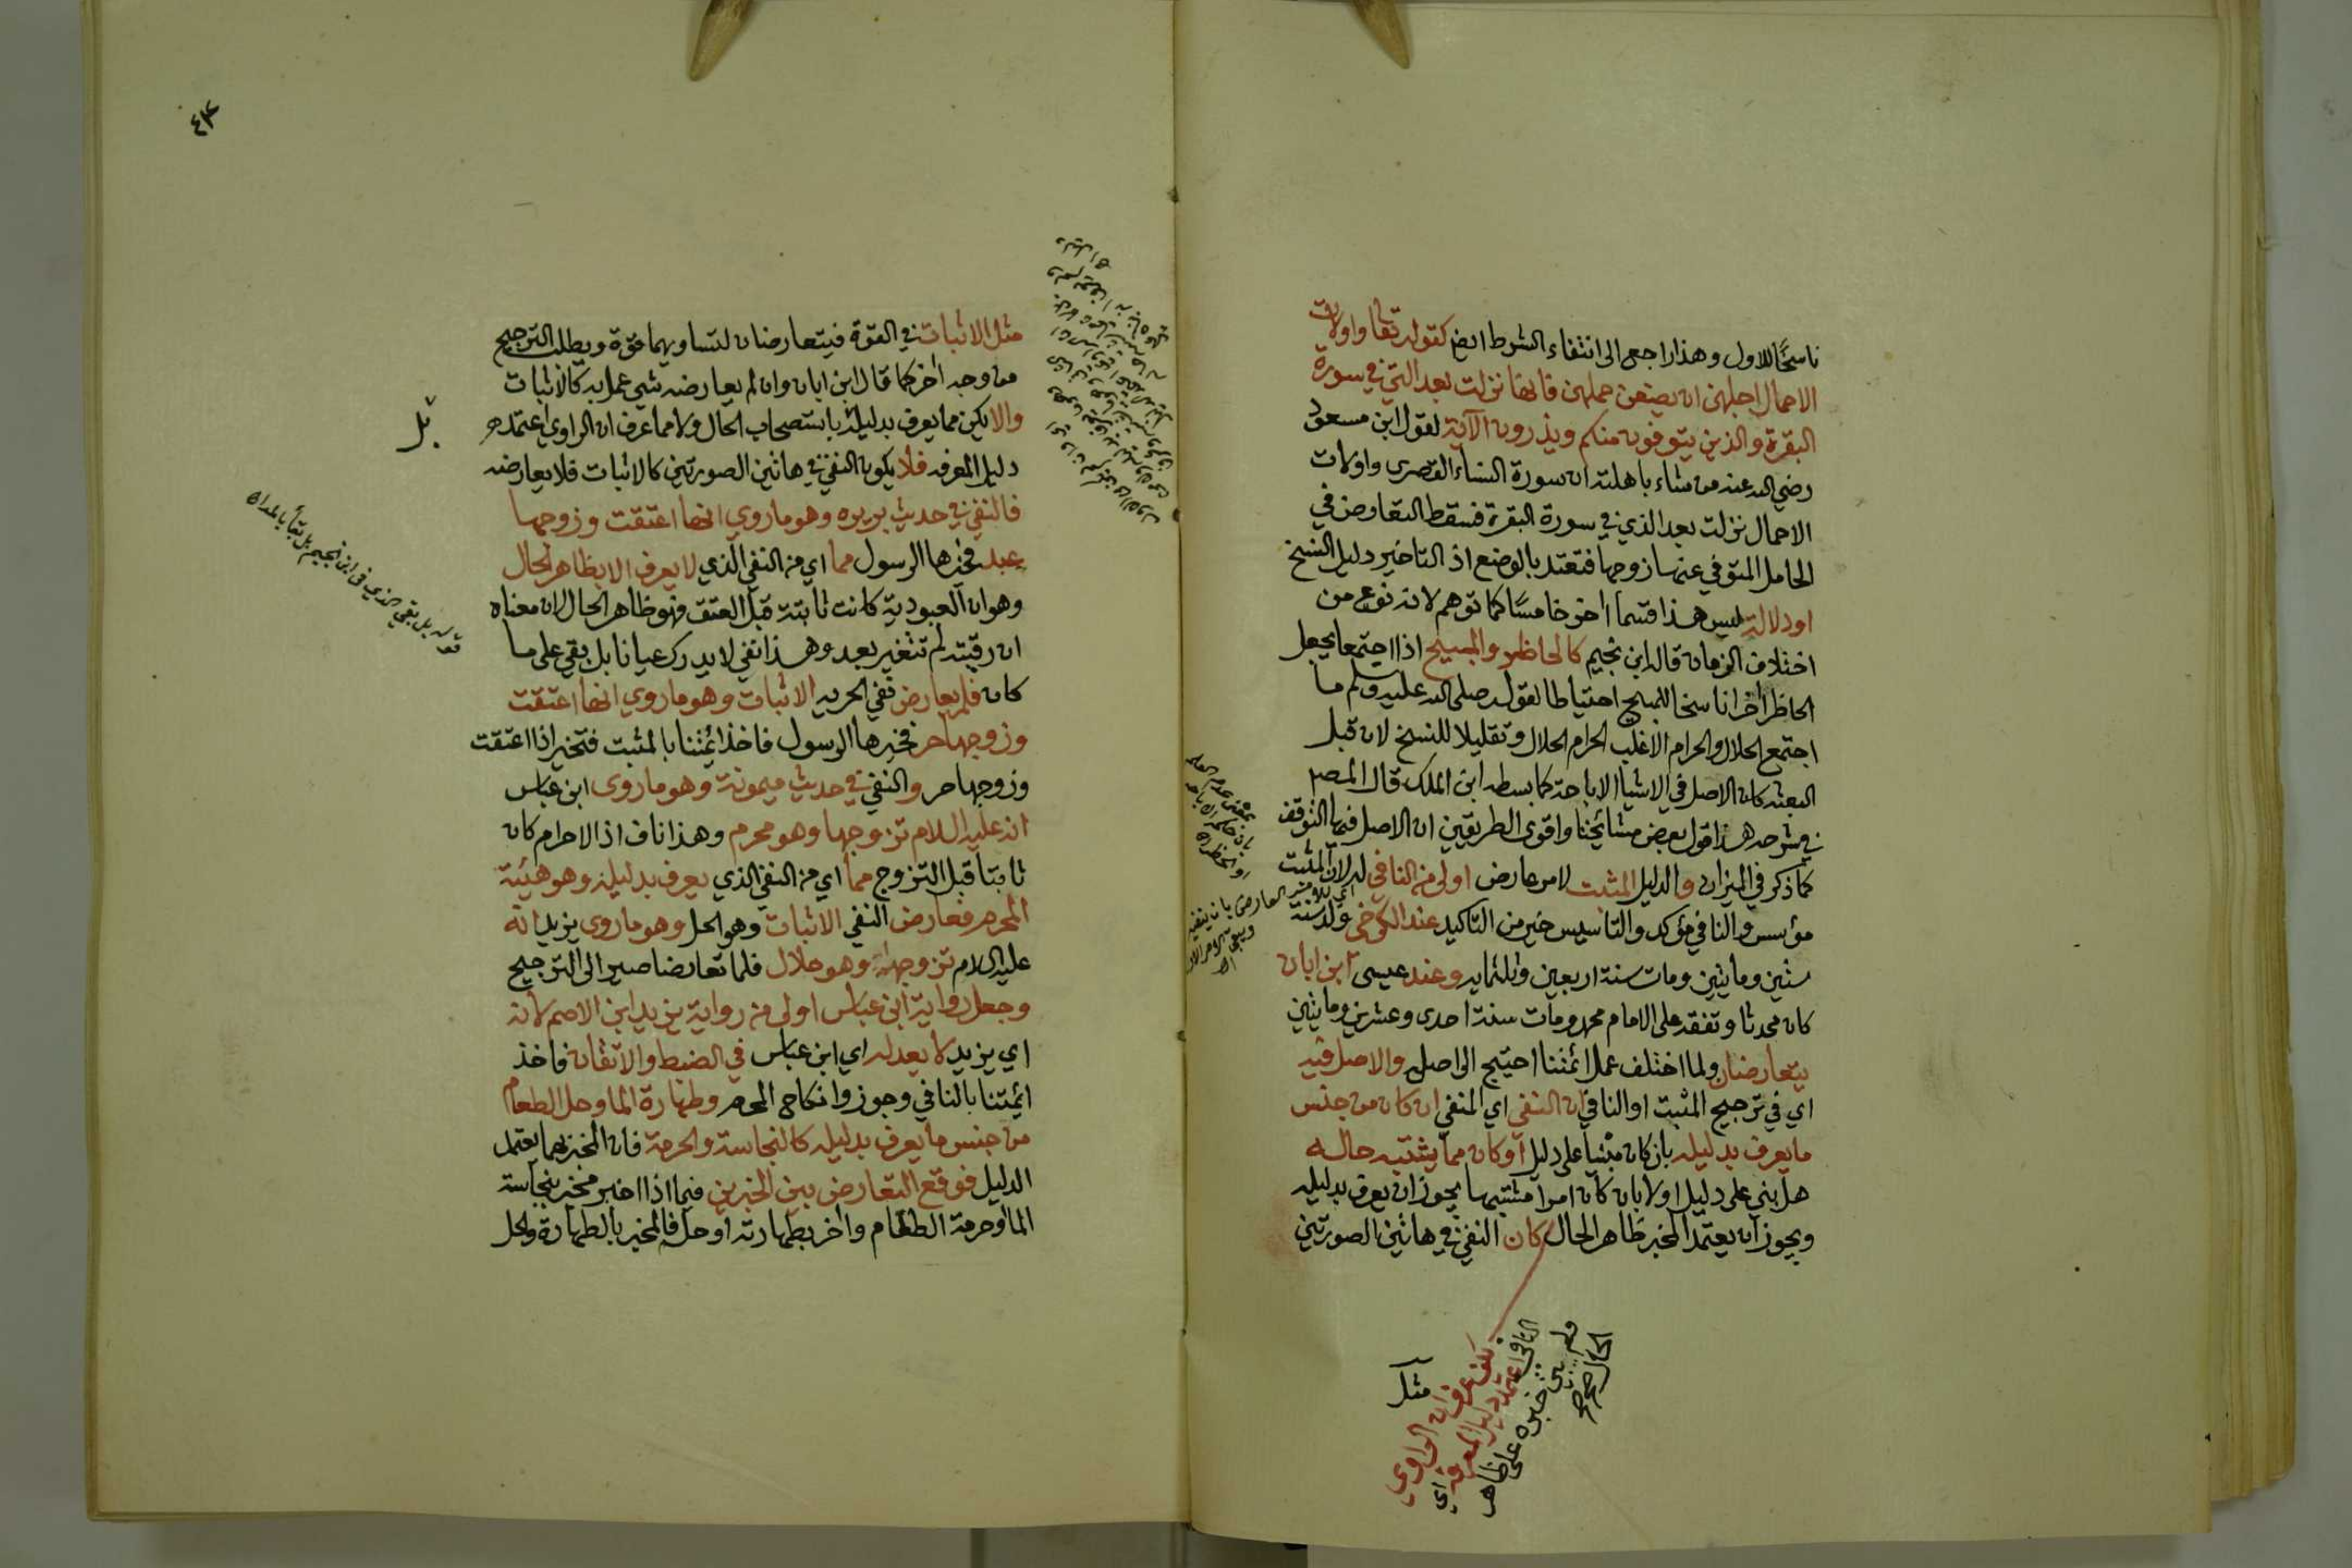 ناسخًا للاول وهذا راجع الى انتفاء الشرط ايض كقوله تعا واولات
الاحمال اجلهن ان يضعن حملهن فانها نزلت بعد التي في سورة
البقرة والذين يتوفون منكم ويذرون الآية لقول ابن مسعود
رضي الله عنه من شاء باهلته ان سورة النساء القصرى واولات
الاحمال نزلت بعد الذي في سورة البقرة فسقط التعارض في
الحامل المتوفي عنها زوجها فتعتد بالوضع اذ التاخير دليل النسخ
او دلالة ليس هذا قسما اخر خامسًا كما توهم لانه نوع من
اختلاف الزمان قاله ابن نجيم كالحاظر والمبيح اذا اجتمعا يجعل
الحاظر اخرا ناسخا للمبيح احتياطا لقوله صلى الله عليه وسلم ما
اجتمع الحلال والحرام الا غلب الحرام الحلال وتقليلا للنسخ لان قبل
البعثه كان الاصل في الاشيا الاباحة كما بسطه ابن الملك قال المصـ
في شرحه هذا قول بعض مشائخنا واقوى الطريقين ان الاصل فيها التوقف
كما ذكر في الميزان والدليل المثبت لامر عارض اولى من النافي له لان المثبت
مؤسس والنافي مؤكد والتاسيس خير من التاكيد عند الكرخي ولد سنة
ستين ومايتين ومات سنة اربعين وثلثمايه وعند عيسى ابن ابان
كان محدثا وتفقه على الامام محمد ومات سنة احدى وعشرين ومايتين
يتعارضان ولما اختلف عمل ائمتنا احتيج الى اصل والاصل فيه
اي في ترجيح المثبت او النافي ان النفي اي المنفي ان كان من جنس
ما يعرف بدليله بان كان مبنيا على دليل او كان مما يشتبه حاله
هل بني على دليل او لا بان كان امرا مشتبها يجوز ان يعرف بدليله
ويجوز ان يعتمد المخبر ظاهر الحال كان النفي في هاتين الصورتين
لكن عرف ان الراوي
اعتمد دليل المعرفه اي
النافي
ولم يبن خبره على ظاهر
الحال صح
مثل
٤٣
مثل الاثبات في القوة فيتعارضان لتساويهما قوة ويطلب الترجيح
من وجه اخر كما قال ابن ابان وان لم يعارضه شي عمل به كالاثبات
والا يكن مما يعرف بدليله بل باستصحاب الحال ولا مما عرف ان الراوي اعتمد
دليل المعرفه فلا يكون النفي في هاتين الصورتين كالاثبات فلا يعارضه
بل
فالنفي في حديث بريره وهو ما روي انها اعتقت وزوجها
عبد فخيرها الرسول مما اي من النفي الذي لا يعرف الا بظاهر الحال
وهو ان العبودية كانت ثابتة قبل العتق فهو ظاهر الحال لان معناه
ان رقيته لم تتغير بعد وهذا نفي لا يدرك عيانا بل بقي على ما
كان فلم يعارض نفي الحريه الاثبات وهو ما روي انها اعتقت
وزوجها حر فخيرها الرسول فاخذ ائمتنا بالمثبت فتخير اذا اعتقت
وزوجها حر والنفي في حديث ميمونة وهو ما روى ابن عباس
انه عليه السلام تزوجها وهو محرم وهذا ناف اذ الاحرام كان
ثابتا قبل التزوج مما اي من النفي الذي يعرف بدليله وهو هيئة
المحرم فعارض النفي الاثبات وهو الحل وهو ما روى يزيد انه
عليه السلام تزوجها وهو حلال فلما تعارضا صير الى الترجيح
وجعل رواية ابن عباس اولى من رواية يزيد ابن الاصم لانه
اي يزيد لا يعدله اي ابن عباس في الضبط والاتقان فاخذ
ائمتنا بالنافي وجوزوا نكاح المحرم وطهارة الما وحل الطعام
من جنس ما يعرف بدليله كالنجاسة والحرمة فان المخبر بهما يعتمد
الدليل فوقع التعارض بين الخبرين فيما اذا اخبر مخبر بنجاسة
الما او حرمة الطعام واخر بطهارته او حله فالمخبر بالطهارة والحل